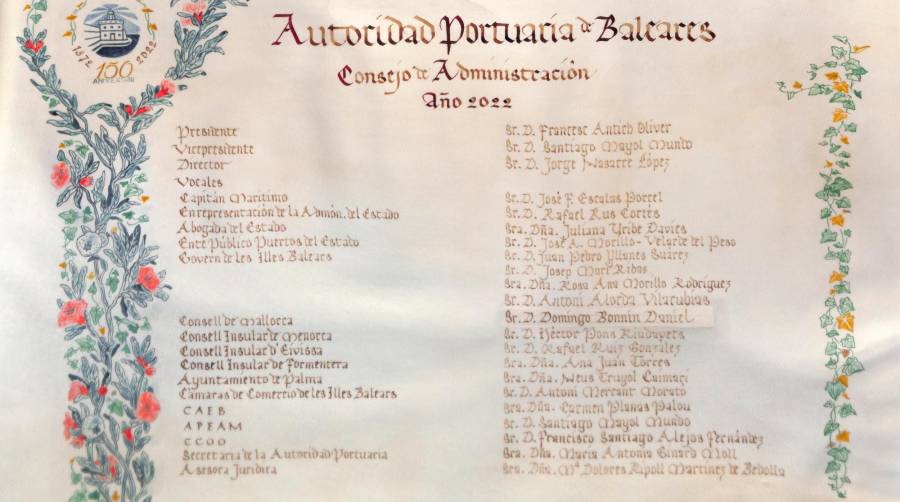 1872 2022
150
ANIVERSARI
Autoridad Portuaria de Baleares
Consejo de Administración
Año 2022
Presidente Sr. D. Francesc Antich Oliver
Vicepresidente Sr. D. Santiago Mayol Mundo
Director Sr. D. Jorge Nasarre López
Vocales
Capitán Marítimo Sr. D. José F. Escalas Porcel
En representación de la Admón. del Estado Sr. D. Rafael Rus Cortés
Abogada del Estado Sra. Dña. Juliana Uribe Davies
Ente Público Puertos del Estado Sr. D. José A. Morillo-Velarde del Peso
Govern de les Illes Balears Sr. D. Juan Pedro Yllanes Suárez
Sr. D. Josep Marí Ribas
Sra. Dña. Rosa Ana Morillo Rodríguez
Sr. D. Antoni Alorda Vilarubias
Consell de Mallorca Sr. D. Domingo Bonnin Daniel
Consell Insular de Menorca Sr. D. Héctor Pons Riudavets
Consell Insular d'Eivissa Sr. D. Rafael Ruiz González
Consell Insular de Formentera Sra. Dña. Ana Juan Torres
Ayuntamiento de Palma Sra. Dña. Neus Truyol Caimari
Cámaras de Comercio de les Illes Balears Sr. D. Antoni Mercant Morató
CAEB Sra. Dña. Carmen Planas Palou
APEAM Sr. D. Santiago Mayol Mundo
CCOO Sr. D. Francisco Santiago Alejos Fernández
Secretaria de la Autoridad Portuaria Sra. Dña. María Antonia Ginard Moll
Asesora Jurídica Sra. Dña. Mª Dolores Ripoll Martínez de Bedolla